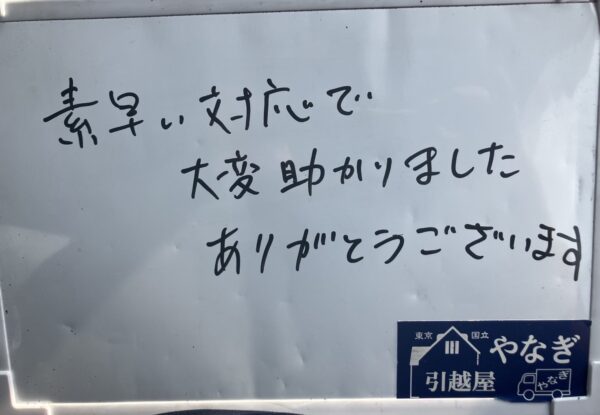 素早い対応で
大変助かりました
ありがとうございます
東京 国立
やなぎ
引越屋
やなぎ